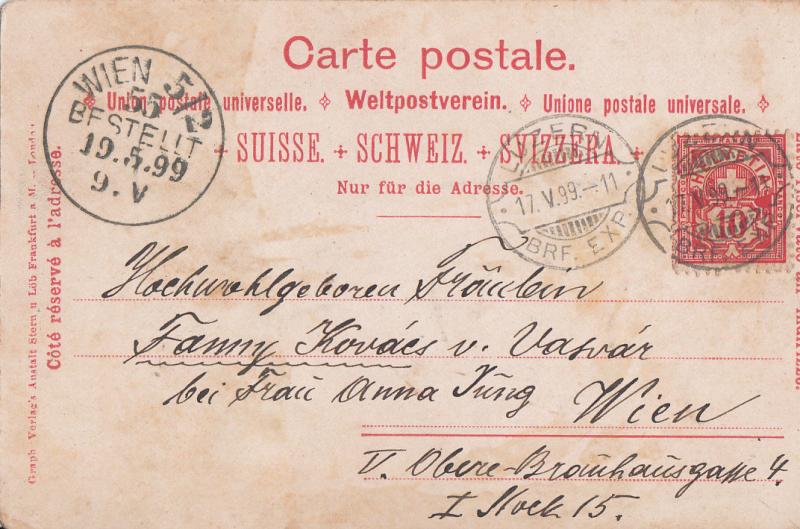 Carte postale.
Union postale universelle. Weltpostverein. Unione postale universale.
+ SUISSE. + SCHWEIZ. + SVIZZERA. +
Nur für die Adresse.
WIEN 5/2
55
BESTELLT
19.5.99
9. V
LUZERN
17.V.99.–11
BRF. EXP.
10
17.V.99.–11
Hochwohlgeboren Fräulein
Fanny Kovács v. Vasvár
bei Frau Anna Jung
Wien
V. Obere-Bräuhausgasse 4.
I Stock 15.
Côté réservé à l'adresse.
Graph Verlag's Anstalt Stern u Löb Frankfurt a M. – London